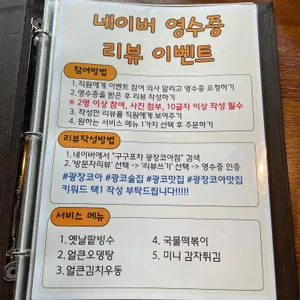 네이버 영수증
리뷰 이벤트
참여방법
1.직원에게 이벤트 참여 의사 알리고 영수증 요청하기
2.영수증을 받은 후 리뷰 작성하기
* 2명 이상 참여, 사진 첨부, 10글자 이상 작성 필수
3. 작성한 리뷰를 직원에게 보여주기
4. 원하는 서비스 메뉴 1가지 선택 후 주문하기
리뷰작성방법
1.네이버에서 "구구포차 광장코아점" 검색
2.'방문자리뷰' 선택 -> '리뷰쓰기' 선택 -> 영수증 인증
#광장코아 #광코술집 #광코맛집 #광장코아맛집
키워드 택1 작성 부탁드립니다!!!!!
서비스 메뉴
1.옛날팥빙수
2.얼큰오뎅탕
3.얼큰김치우동
4. 국물떡볶이
5. 미니 감자튀김